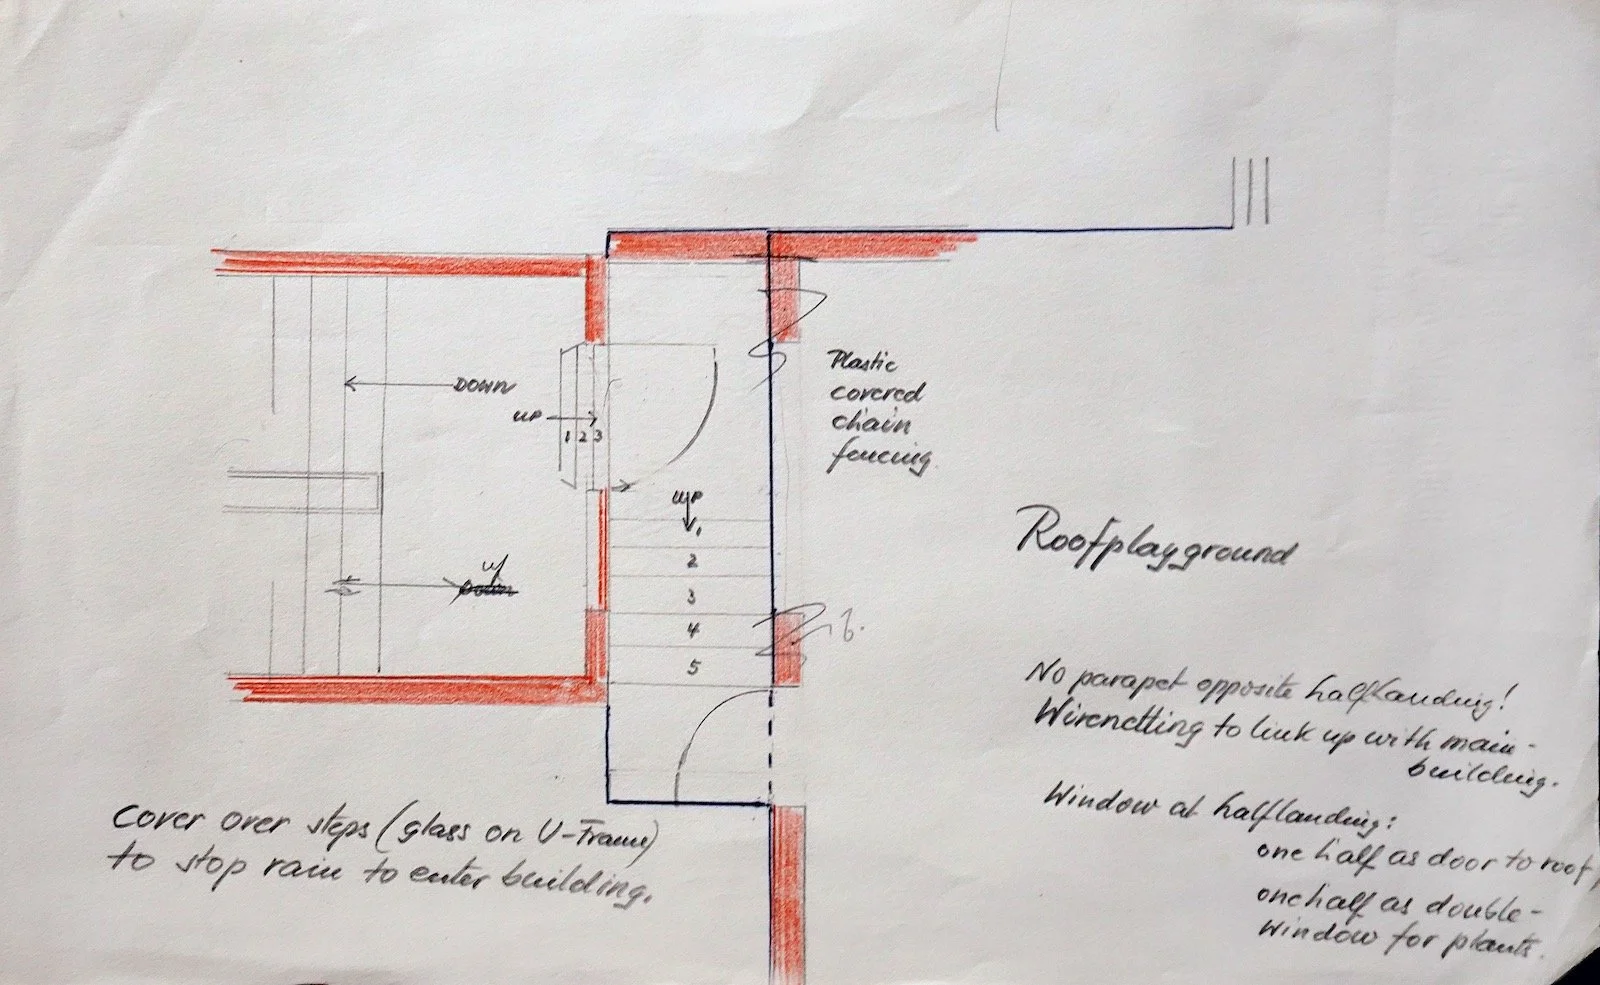 DOWN
UP
1 2 3
UP
1
2
3
4
5
up
Down
Plastic
covered
chain
fencing.
Roofplayground
No parapet opposite halflanding!
Wirenetting to link up with main-
building.
Window at halflanding:
one half as door to roof,
one half as double-
window for plants.
Cover over steps (glass on U-Frame)
to stop rain to enter building.